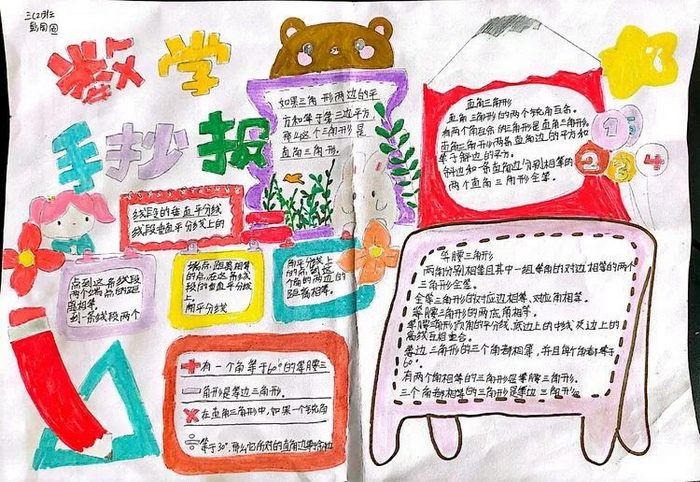 三(2)班
数学
手抄报
如果三角形两边的平
方和等于第三边平方,
那么这个三角形是
直角三角形.
直角三角形
直角三角形的两个锐角互余。
有两个角互余的三角形是直角三角形。
直角三角形两条直角边的平方和
等于斜边的平方。
斜边和一条直角边分别相等的
两个直角三角形全等。
7
1
5
2
3
4
线段的垂直平分线
线段垂直平分线上的
点到这条线段
两个端点的距
离相等。
到一条线段两个
端点距离相等
的点,在这条线
段的垂直平分线
上。
角平分线
角平分线上
的点到这
个角的两边的
距离相等。
有一个角等于60°的等腰三
角形是等边三角形.
在直角三角形中,如果一个锐角
等于30°,那么它所对的直角边等于
等腰三角形
两角分别相等且其中一组等角的对边相等的两个
三角形全等。
全等三角形的对应边相等、对应角相等。
等腰三角形的两底角相等。
等腰三角形顶角的平分线、底边上的中线及边上的
高线互相重合。
等边三角形的三个角都相等,并且每个角都等于
60°.
有两个角相等的三角形是等腰三角形。
三个角都相等的三角形是等边三角形。